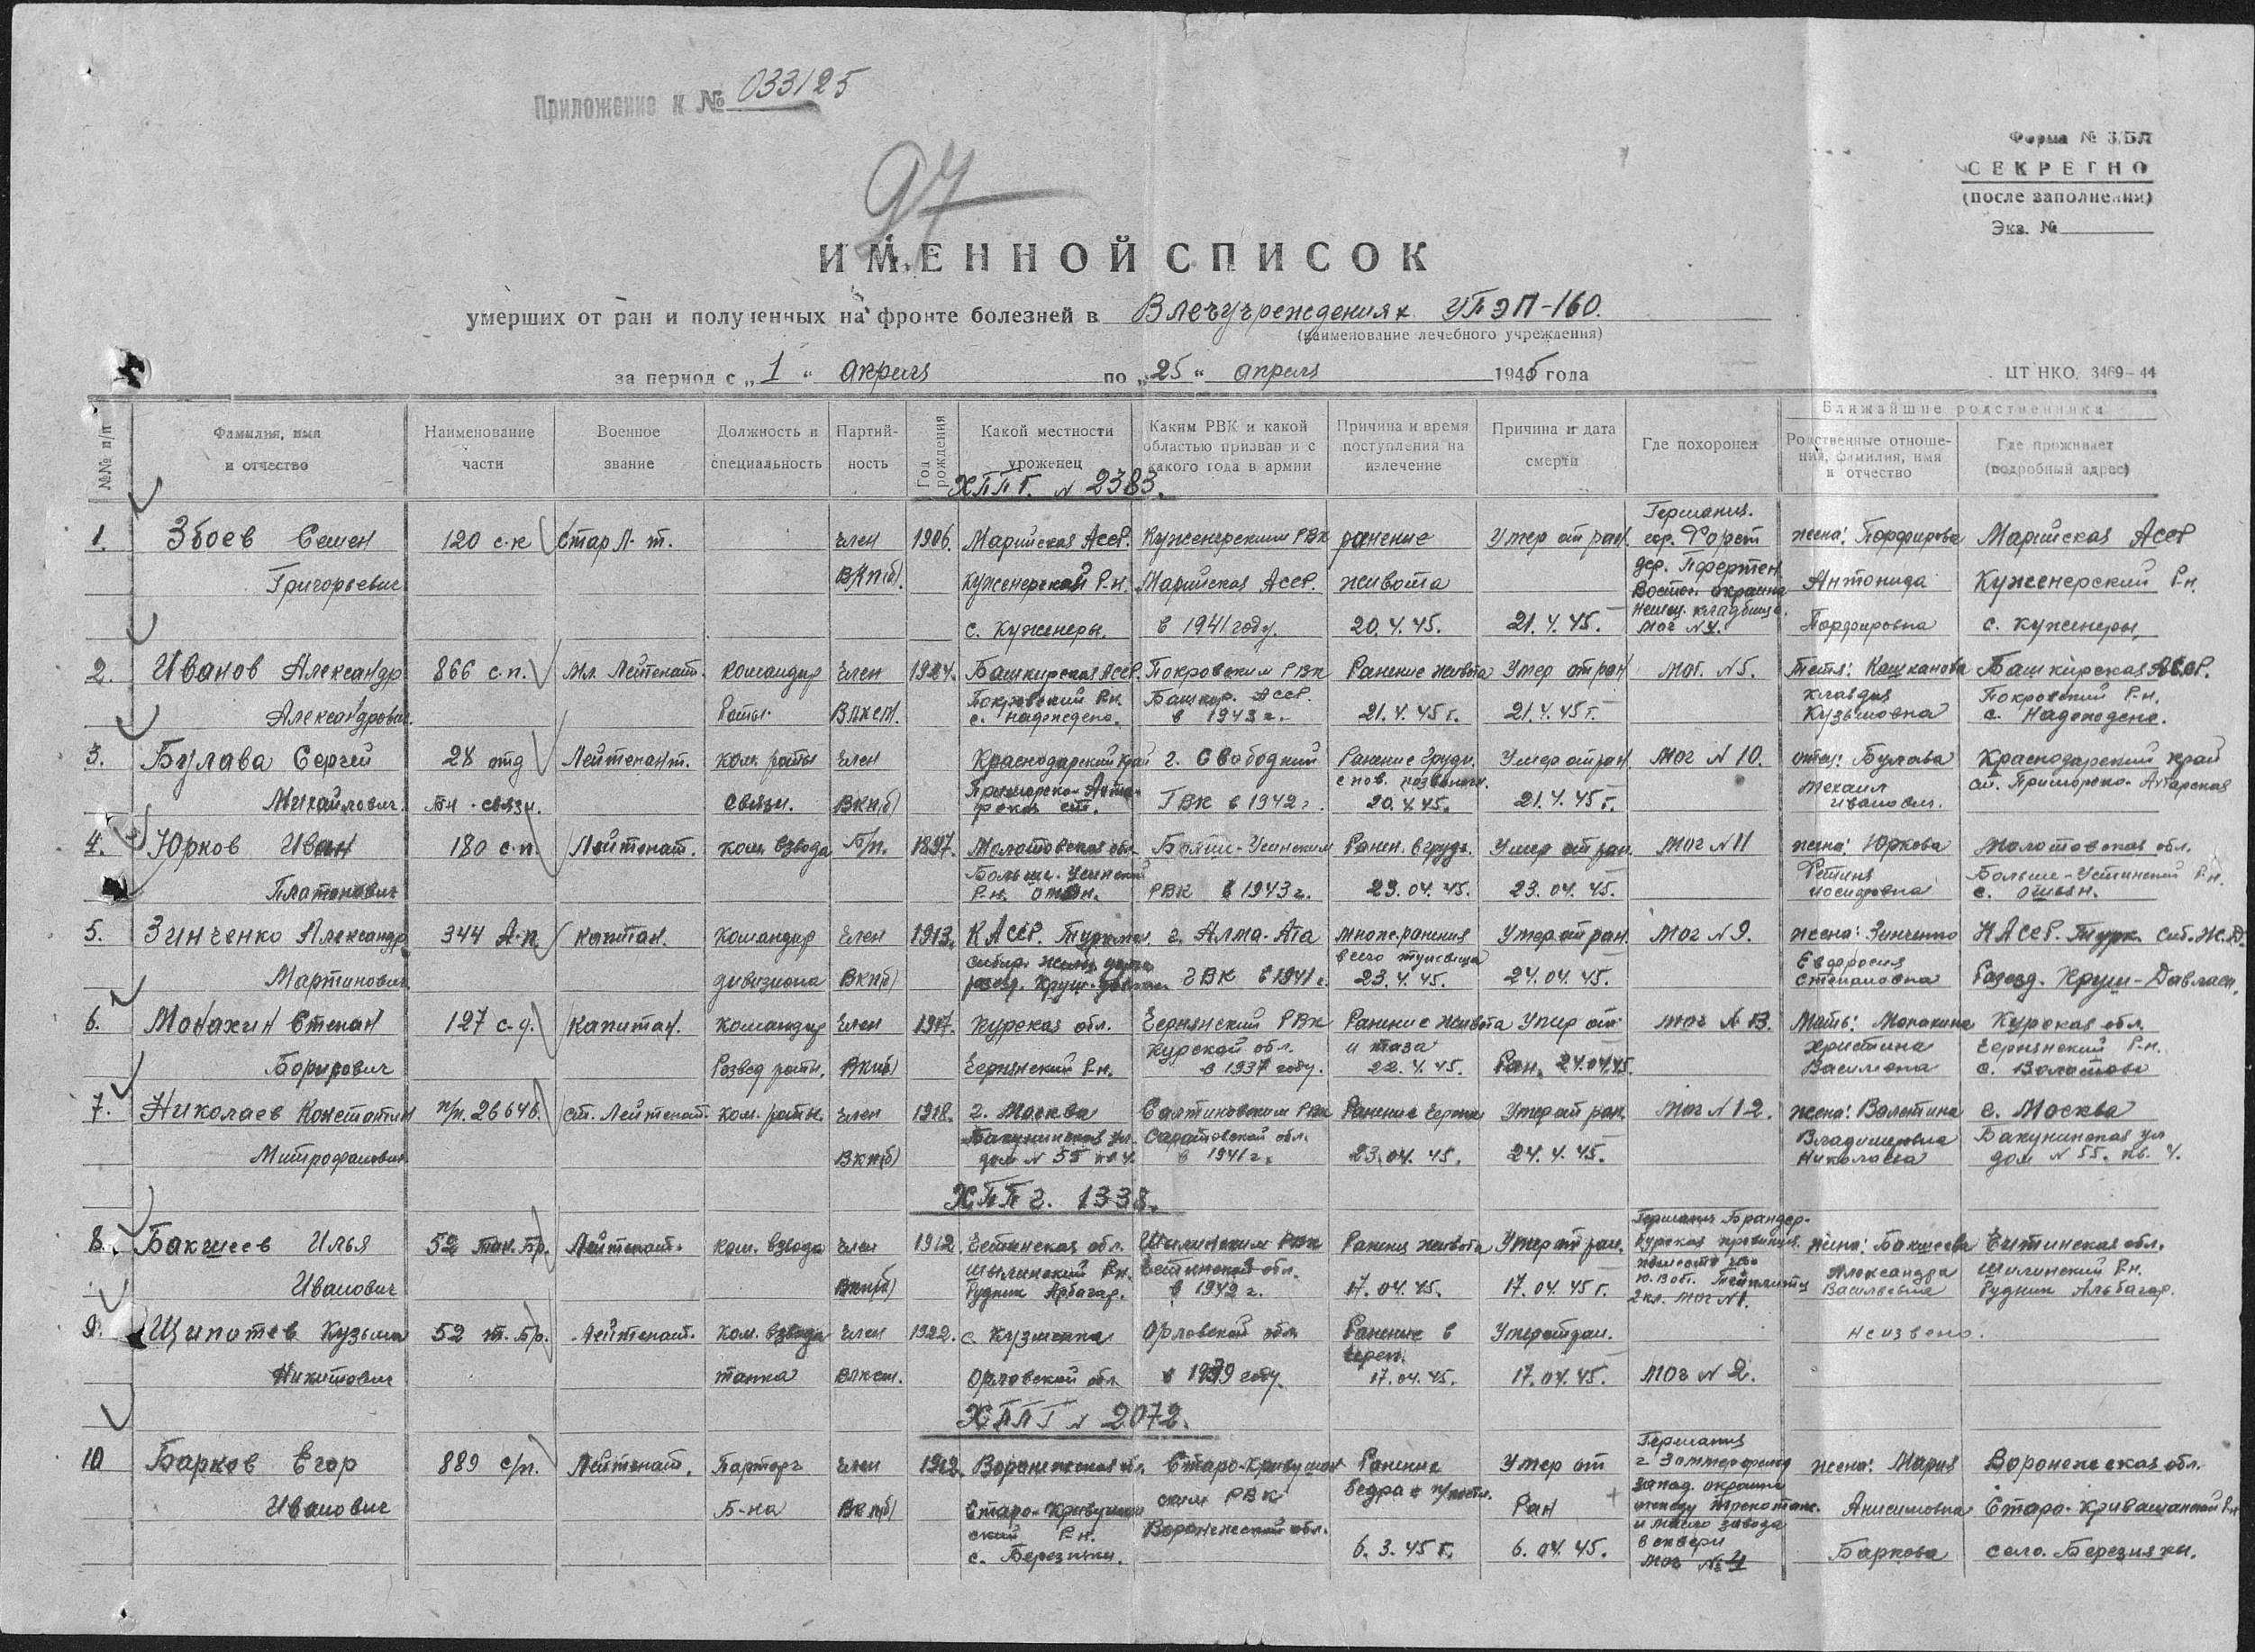 Приложение к № 033125
97
Форма № 3/БЛ
СЕКРЕТНО
(после заполнения)
Экз. №
ИМЕННОЙ СПИСОК
умерших от ран и полученных на фронте болезней в В лечучреждениях УПЭП-160.
(наименование лечебного учреждения)
за период с „1“ апреля по „25“ апреля 1945 года
ЦТ НКО. 3469-44
№№ п/п
Фамилия, имя и отчество
Наименование части
Военное звание
Должность и специальность
Партийность
Год рождения
Какой местности уроженец
Каким РВК и какой областью призван и с какого года в армии
Причина и время поступления на излечение
Причина и дата смерти
Где похоронен
Ближайшие родственники
Родственные отношения, фамилия, имя и отчество
Где проживает (подробный адрес)
ХППГ. № 2383.
1. Збоев Семен 120 с.к Стар Л-т. член 1906. Марийская АССР. Куженерским РВК ранение Умер от ран. Германия. гор. Форст жена: Порфирова Марийская АССР
Григорьевич ВКП(б). Куженерский Р-н. Марийская АССР. живота дер. Пфертен Восточ. окраина Антонида Куженерский Р-н.
с. Куженеры. в 1941 году. 20.4.45. 21.4.45. немец. кладбище. Мог № 4. Порфировна с. Куженеры,
2. Иванов Александр 866 с.п. Мл. Лейтенант. командир член 1924. Башкирская АССР. Покровским РВК Ранение живота Умер от ран Мог. № 5. тетя: Кашканова Башкирская АССР.
Александрович Роты. ВЛКСМ. Покровский Р-н. с. Надеждено. Башкир. АССР. в 1943 г. 21.4.45 г. 21.4.45 г. Клавдия Кузьмовна Покровский Р-н. с. Надеждено.
3. Булава Сергей 28 отд Лейтенант. ком. роты член Краснодарский край г. Свободный Ранение груди Умер от ран Мог № 10. отец: Булава Краснодарский край
Михайлович. Бн. связи. связи. ВКП(б) Приморско-Ахтарская ст. ГВК в 1942 г. с пов. позвоноч. 20.4.45. 21.4.45 г. Михаил Иванович. ст. Приморско-Ахтарская
4. Юрков Иван 180 с.п. Лейтенант. ком. взвода Б/п. 1897. Молотовская обл. Больше-Усинским Ранен. в грудь. Умер от ран. Мог № 11 жена: Юркова Молотовская обл.
Платонович Больше-Усинский Р-н. РВК в 1943 г. 23.04.45. 23.04.45. Фетиния Иосифовна Больше-Устинский Р-н.
5. Зинченко Александр 344 А.п капитан. командир член 1913. К АССР. Туркмен. г. Алма-Ата множ. ранения Умер от ран. Мог № 9. жена: Зинченко К АССР. Турк. Сиб. Ж.Д.
Мартинович дивизиона ВКП(б) сибир. желез. дорога разъезд. ГВК в 1941 г. всего туловища 23.4.45. 24.04.45. Евфросия Степановна Разъезд.
6. Монахин Степан 127 с.д. капитан. командир член 1917. Курская обл. Чернянский РВК Ранение живота Умер от Мог № 13. Мать: Монахина Курская обл.
Борисович Развед роты. ВКП(б) Чернянский Р-н. Курской обл. в 1937 году. и таза 22.4.45. Ран. 24.04.45. Христина Чернянский Р-н. с. Волотово
7. Николаев Константин п/п. 26646. ст. Лейтенант. ком. роты. член 1918. г. Москва Салтыковским РВК Ранение черепа Умер от ран. Мог № 12. жена: Валентина г. Москва
Митрофанович ВКП(б) Бакунинская ул дом № 55 кв 4. Саратовской обл. в 1941 г. 23.04.45. 24.4.45. Владимировна Николаева Бакунинская ул дом № 55. кв. 4.
ХППг. 1338.
8. Бакшеев Илья 52 тан. бр. Лейтенант. ком. взвода член 1912. Читинская обл. Шилинским РВК Ранение живота Умер от ран. Германия Бранденбурская провинция. жена: Бакшеева Читинская обл.
Иванович ВКП(б) Шилинский Р-н. Рудник Арбагар. Читинской обл. в 1942 г. 17.04.45. 17.04.45 г. 2 кл. Мог № 1. Александра Васильевна Шилинский Р-н. Рудник Альбагар.
9. Щипотев Кузьма 52 т. бр. Лейтенант. ком. взвода член 1922. с. Кузменка Орловской обл Ранение в Умер от ран. неизвено.
Никитович танка ВЛКСМ. Орловской обл в 1939 году. череп. 17.04.45. 17.04.45. Мог № 2.
ХППГ № 2072.
10 Барков Егор 889 с/п. Лейтенант. Парторг член 1912. Воронежская обл. Старо-Кривушан Ранение Умер от Германия г. Зоммерфельд жена: Мария Воронежская обл.
Иванович Б-на ВКП(б) Старо-Кривушанский Р-н. ским РВК бедра Ран Запад. окраина Анисимовна Старо-Кривашанский Р-н
с. Березняки. Воронежской обл. 6.3.45 г. 6.04.45. и масло завода в сквере Мог № 4 Баркова село. Березняки.